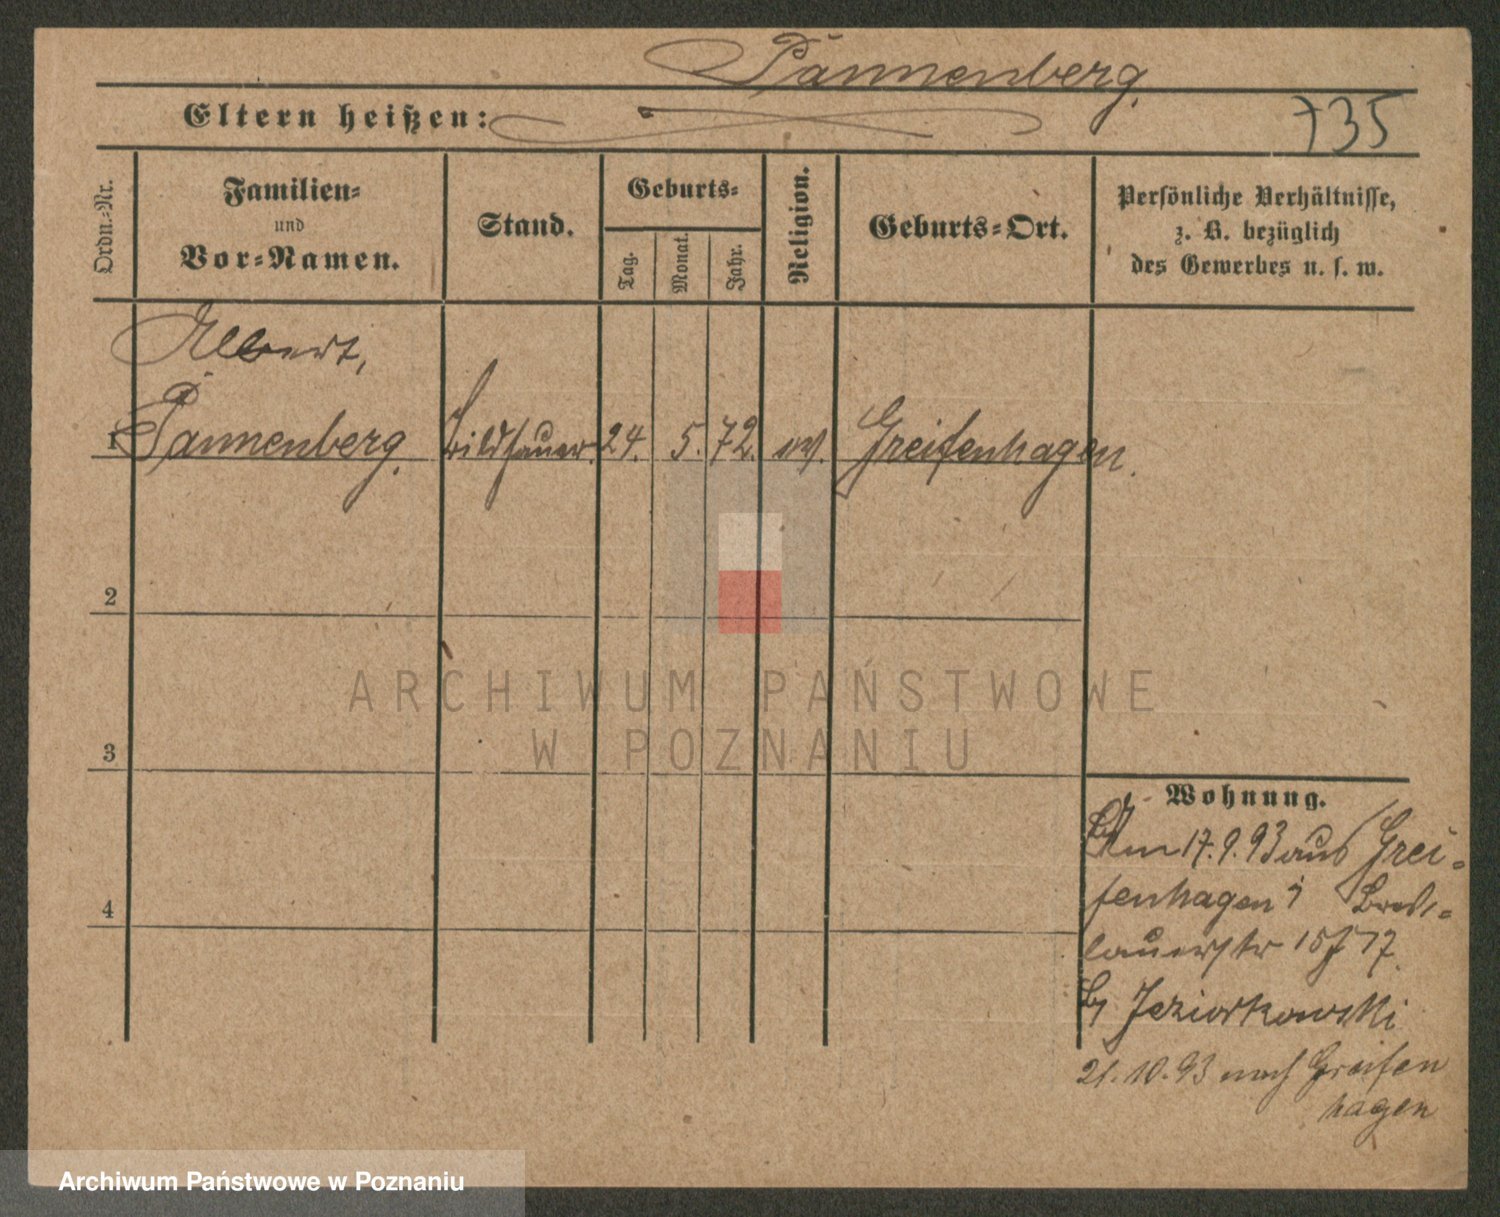 Pannenberg.
Eltern heißen:
735
Ordn.-Nr.
Familien-
und
Vor-Namen.
Stand.
Geburts-
Tag.
Monat.
Jahr.
Religion.
Geburts-Ort.
Persönliche Verhältnisse,
z. B. bezüglich
des Gewerbes u. s. w.
Albert,
1 Pannenberg. Bildhauer. 24. 5. 72. ev. Greifenhagen.
2
3
4
Wohnung.
Am 17.9.93 aus Grei-
fenhagen Bres-
lauerstr 15 17.
Jeziorkowski
21.10.93 nach Greifen
hagen
ARCHIWUM PAŃSTWOWE
W POZNANIU
Archiwum Państwowe w Poznaniu